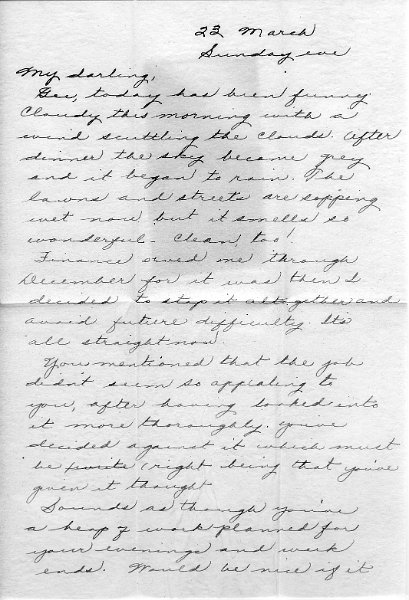 23 March
Sunday eve
My darling,
Gee, today has been funny
Cloudy this morning with a
wind scuttling the clouds. After
dinner the sky became grey
and it began to rain. The
lawns and streets are sopping
wet now but it smells so
wonderful - clean, too!
Finance owed me through
December for it was then I
decided to stop it altogether and
avoid future difficulty. Its
all straight now.
You mentioned that the job
didn't seem so appealing to
you, after having looked into
it more thoroughly. You've
decided against it which must
be right being that you've
given it thought
Sounds as though you've
a heap of work planned for
your evenings and week
ends. Would be nice if it